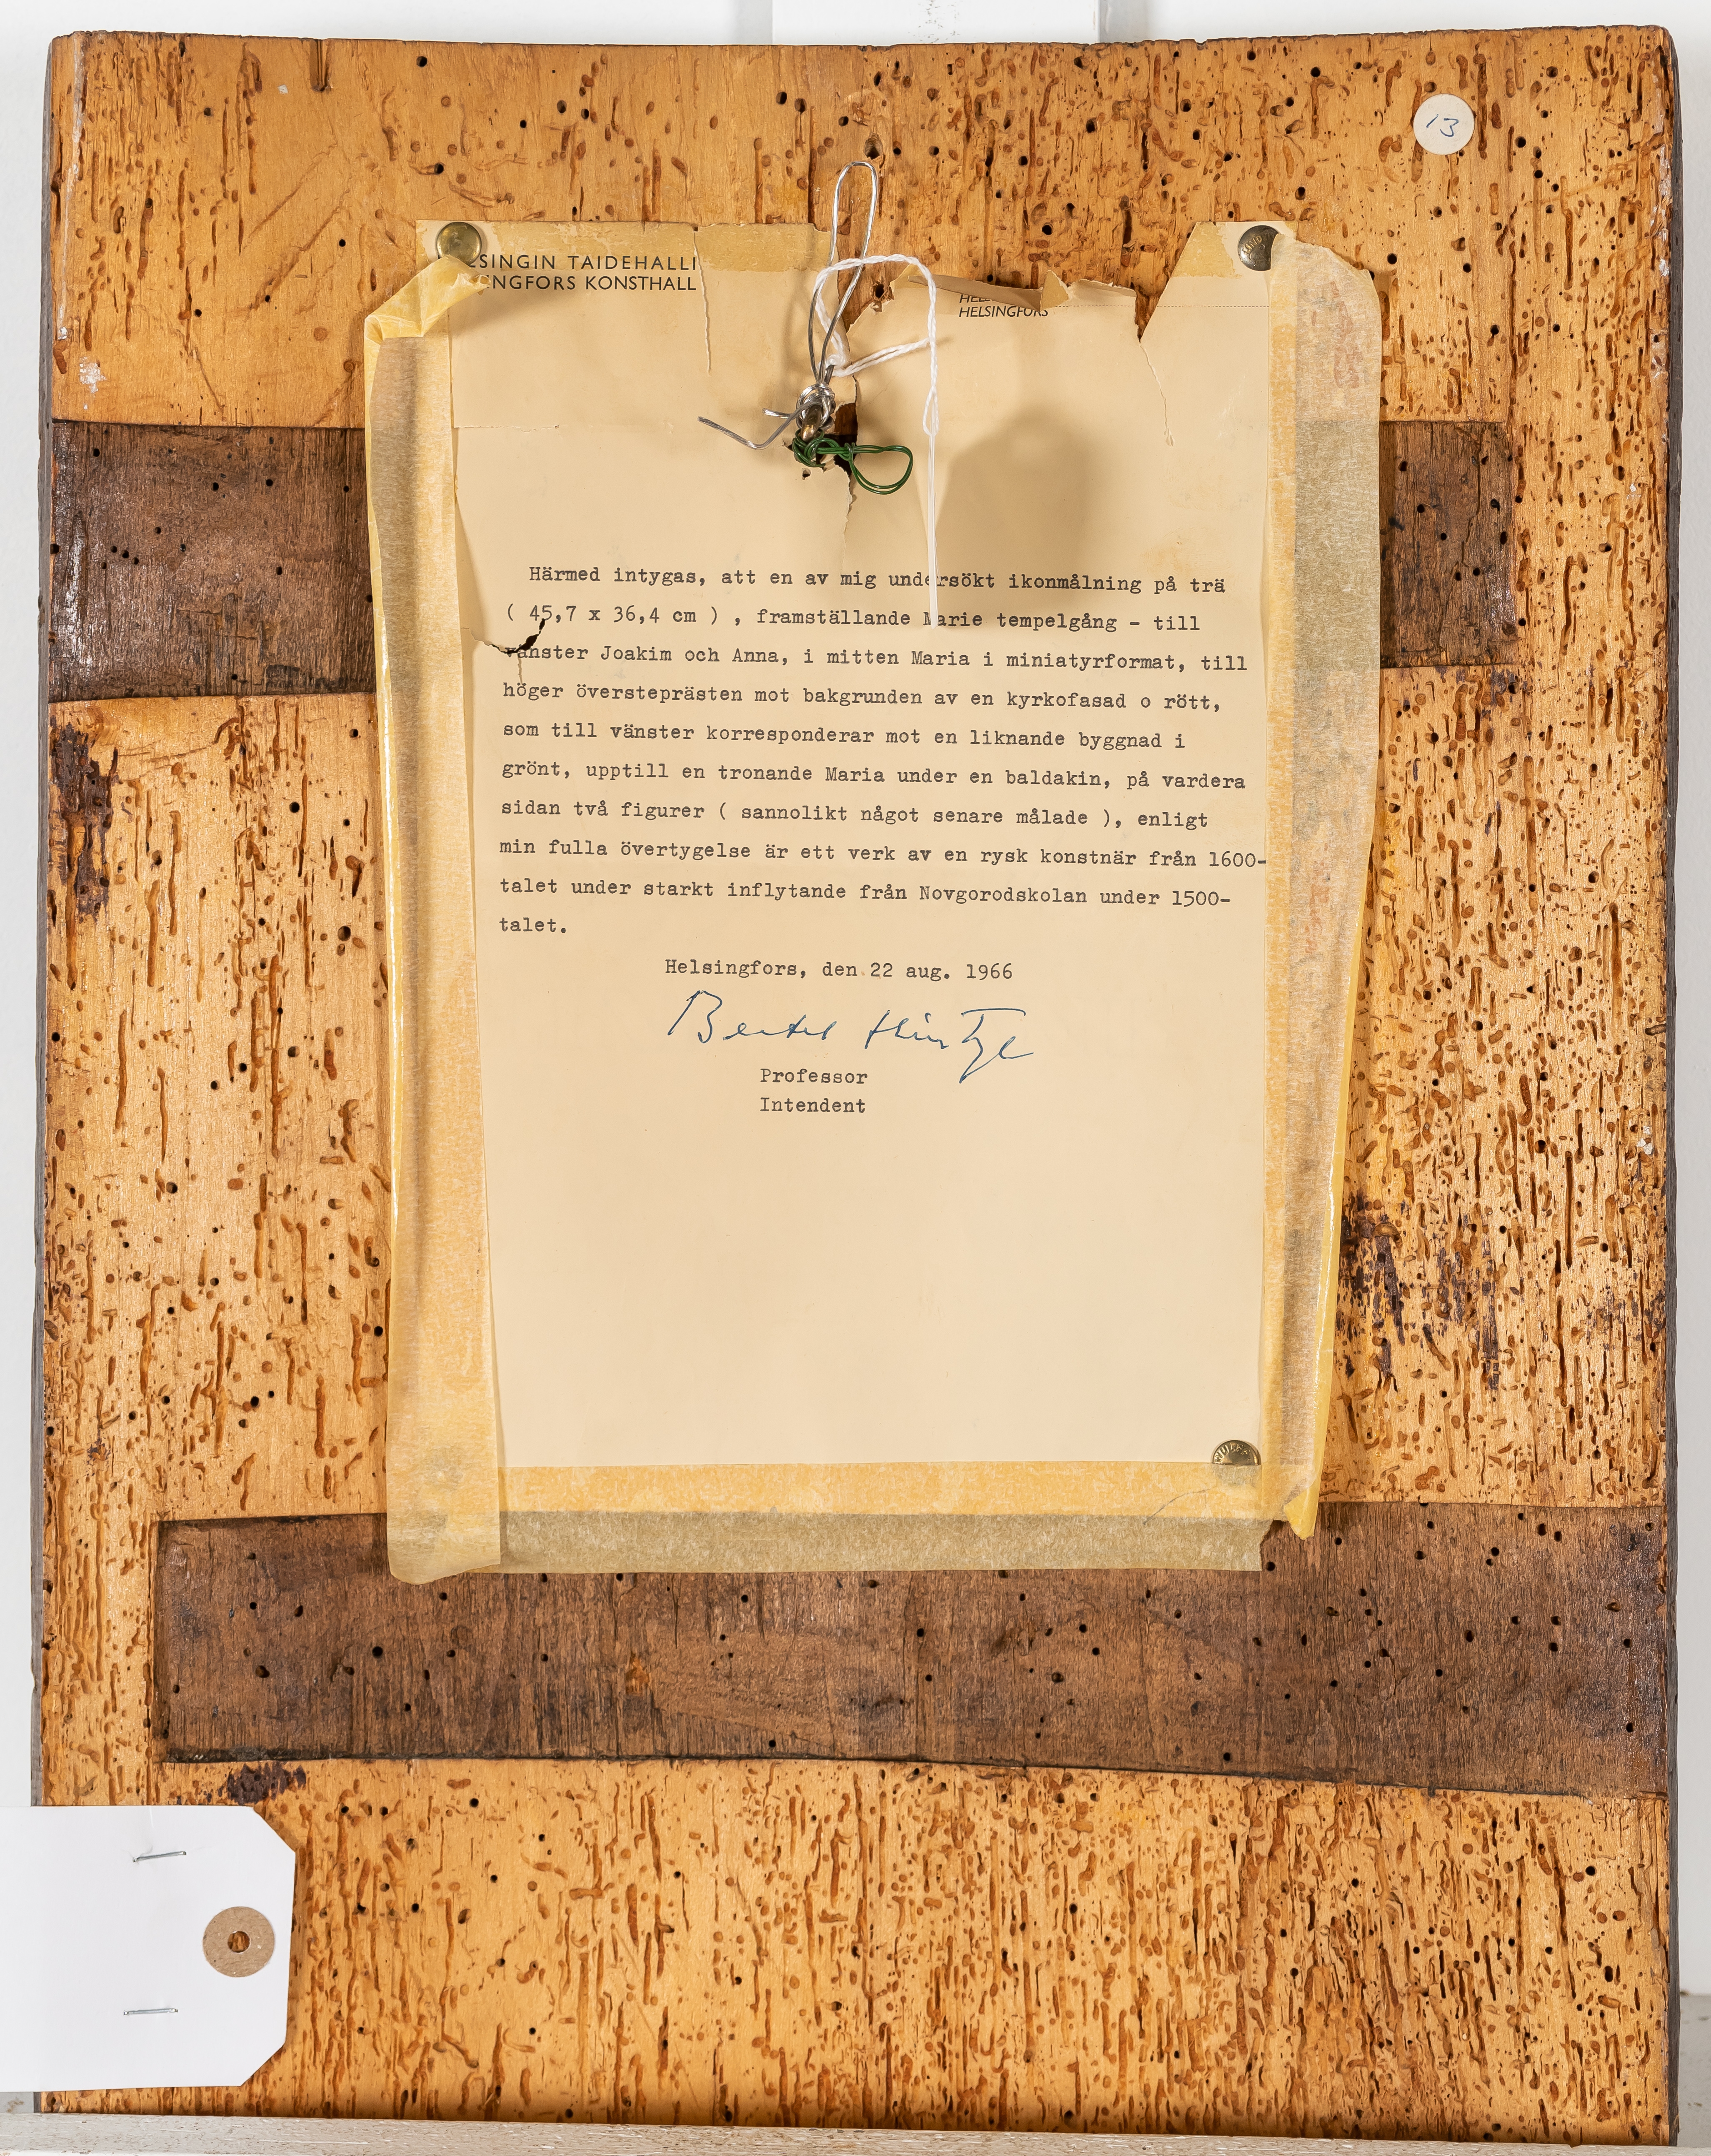 13
SINGIN TAIDEHALLI
NGFORS KONSTHALL
HELSINGFORS
Härmed intygas, att en av mig undersökt ikonmålning på trä
( 45,7 x 36,4 cm ) , framställande Marie tempelgång - till
vänster Joakim och Anna, i mitten Maria i miniatyrformat, till
höger översteprästen mot bakgrunden av en kyrkofasad o rött,
som till vänster korresponderar mot en liknande byggnad i
grönt, upptill en tronande Maria under en baldakin, på vardera
sidan två figurer ( sannolikt något senare målade ), enligt
min fulla övertygelse är ett verk av en rysk konstnär från 1600-
talet under starkt inflytande från Novgorodskolan under 1500-
talet.
Helsingfors, den 22 aug. 1966
Bertel Hintze
Professor
Intendent